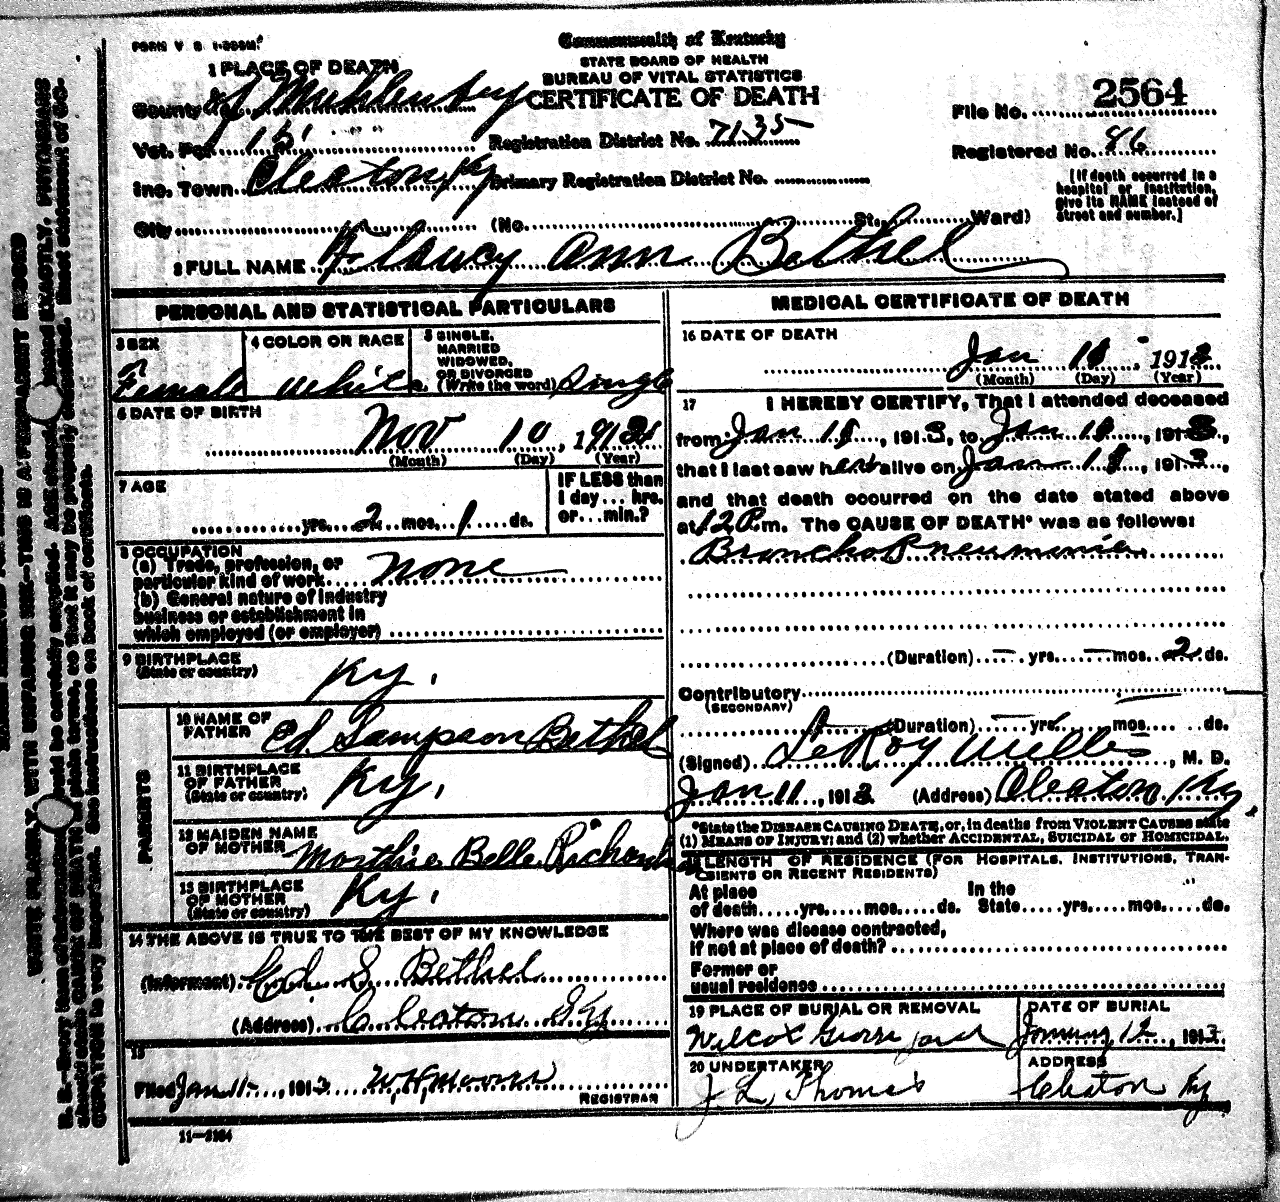 FORM V. S. 1-300M.
Commonwealth of Kentucky
STATE BOARD OF HEALTH
BUREAU OF VITAL STATISTICS
CERTIFICATE OF DEATH
1 PLACE OF DEATH
County of Muhlenberg
Vot. Pct. 15
Inc. Town Cleaton, Ky
City
Registration District No. 7135
Primary Registration District No.
(No. St., Ward)
File No. 2564
Registered No. 86
[If death occurred in a
hospital or institution,
give its NAME instead of
street and number.]
2 FULL NAME Ann Bethel
PERSONAL AND STATISTICAL PARTICULARS
3 SEX
Female
4 COLOR OR RACE
White
5 SINGLE,
MARRIED
WIDOWED,
OR DIVORCED
(Write the word) Single
6 DATE OF BIRTH
Nov 10, 1912
(Month) (Day) (Year)
7 AGE
yrs. 2 mos. 1 ds.
IF LESS than
1 day... hrs.
or...min.?
8 OCCUPATION
(a) Trade, profession, or
particular kind of work None
(b) General nature of industry
business or establishment in
which employed (or employer)
9 BIRTHPLACE
(State or country)
Ky.
PARENTS
10 NAME OF
FATHER Ed Sampson Bethel
11 BIRTHPLACE
OF FATHER
(State or country) Ky.
12 MAIDEN NAME
OF MOTHER Belle
13 BIRTHPLACE
OF MOTHER
(State or country) Ky.
14 THE ABOVE IS TRUE TO THE BEST OF MY KNOWLEDGE
(Informant) Ed S. Bethel
(Address) Cleaton Ky
15
Filed Jan 11-, 1913 REGISTRAR
11-3184
MEDICAL CERTIFICATE OF DEATH
16 DATE OF DEATH
Jan 11, 1913
(Month) (Day) (Year)
17 I HEREBY CERTIFY, That I attended deceased
from Jan 11, 1913, to Jan 11, 1913,
that I last saw her alive on Jan 11, 1913,
and that death occurred on the date stated above
at 12 P.m. The CAUSE OF DEATH* was as follows:
Broncho Pneumonia
(Duration) — yrs. — mos. 2 ds.
Contributory
(SECONDARY)
(Duration) — yrs. mos. ds.
(Signed) LeRoy Willes, M. D.
Jan 11, 1913 (Address) Cleaton Ky.
*State the DISEASE CAUSING DEATH, or, in deaths from VIOLENT CAUSES state
(1) MEANS OF INJURY; and (2) whether ACCIDENTAL, SUICIDAL or HOMICIDAL.
18 LENGTH OF RESIDENCE (FOR HOSPITALS, INSTITUTIONS, TRAN-
SIENTS OR RECENT RESIDENTS)
At place
of death yrs. mos. ds.
In the
State yrs. mos. ds.
Where was disease contracted,
if not at place of death?
Former or
usual residence
19 PLACE OF BURIAL OR REMOVAL
Wilcox Grave yard
DATE OF BURIAL
January 12, 1913.
20 UNDERTAKER
J L Thomas
ADDRESS
Cleaton Ky
WRITE PLAINLY, WITH UNFADING INK—THIS IS A PERMANENT RECORD
N. B.—Every item of information should be carefully supplied. AGE should be stated EXACTLY. PHYSICIANS
should state CAUSE OF DEATH in plain terms, so that it may be properly classified. Exact statement of OC-
CUPATION is very important. See instructions on back of certificate.